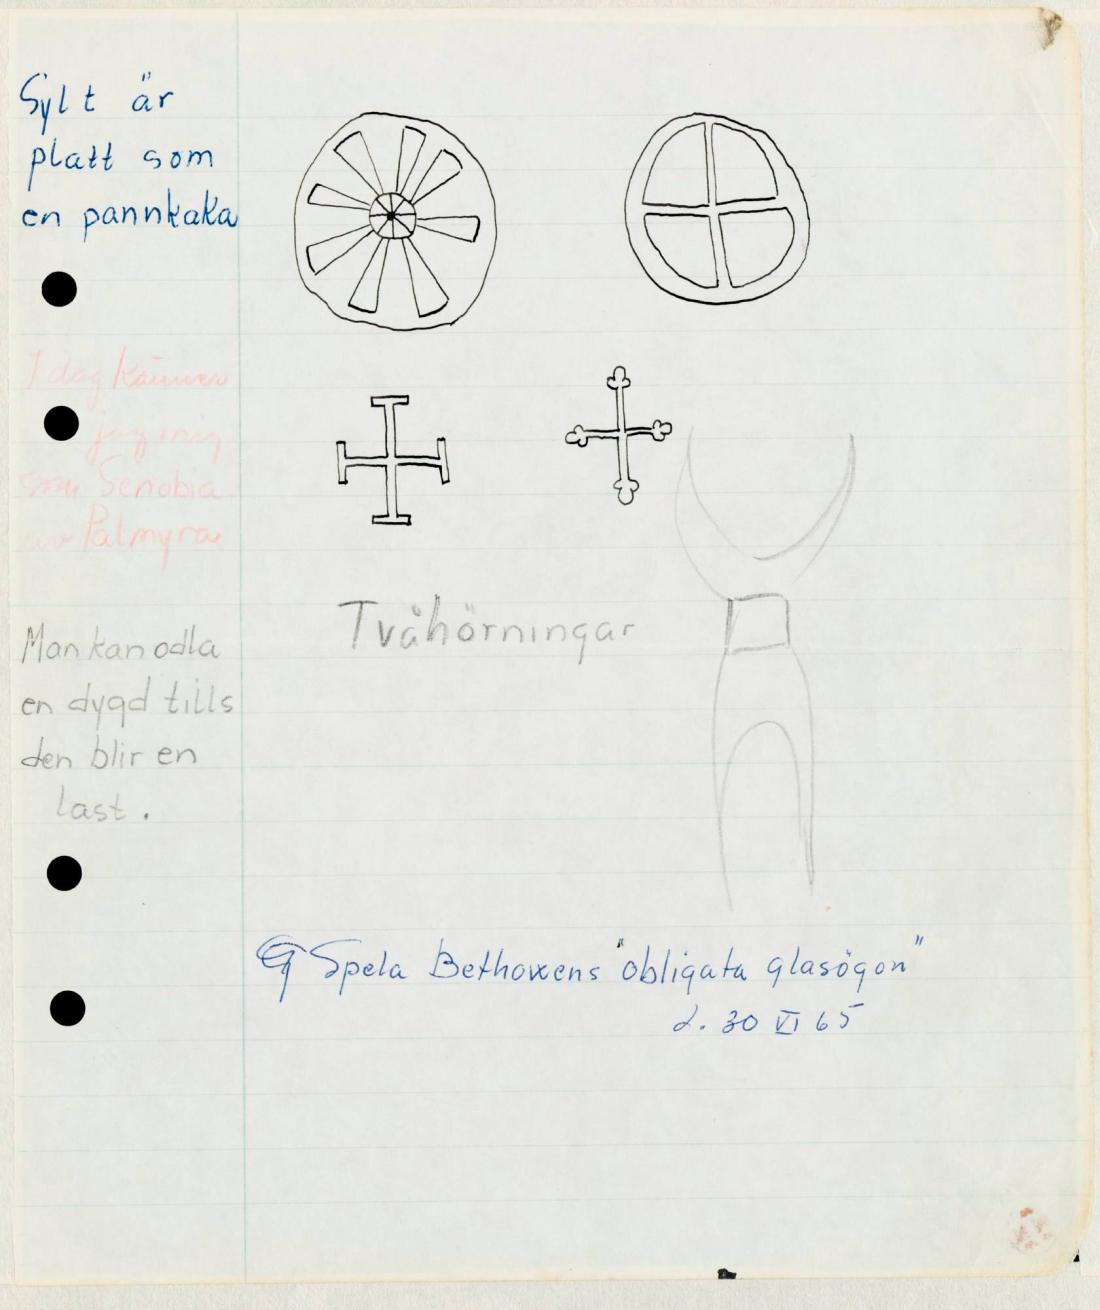 Sylt är
platt som
en pannkaka
I dag känner
jag mig
som Senobia
av Palmyra
Tvåhörningar
Man kan odla
en dygd tills
den blir en
last.
Spela Bethovens "obligata glasögon"
d. 30 VI 65